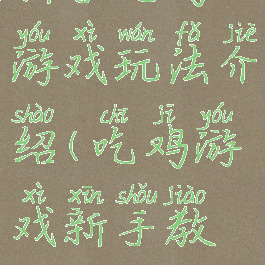 yóu xì wán fǎ jiè
游戏玩法介
shào chī jī yóu
绍(吃鸡游
xì xīn shǒu jiào
戏新手教